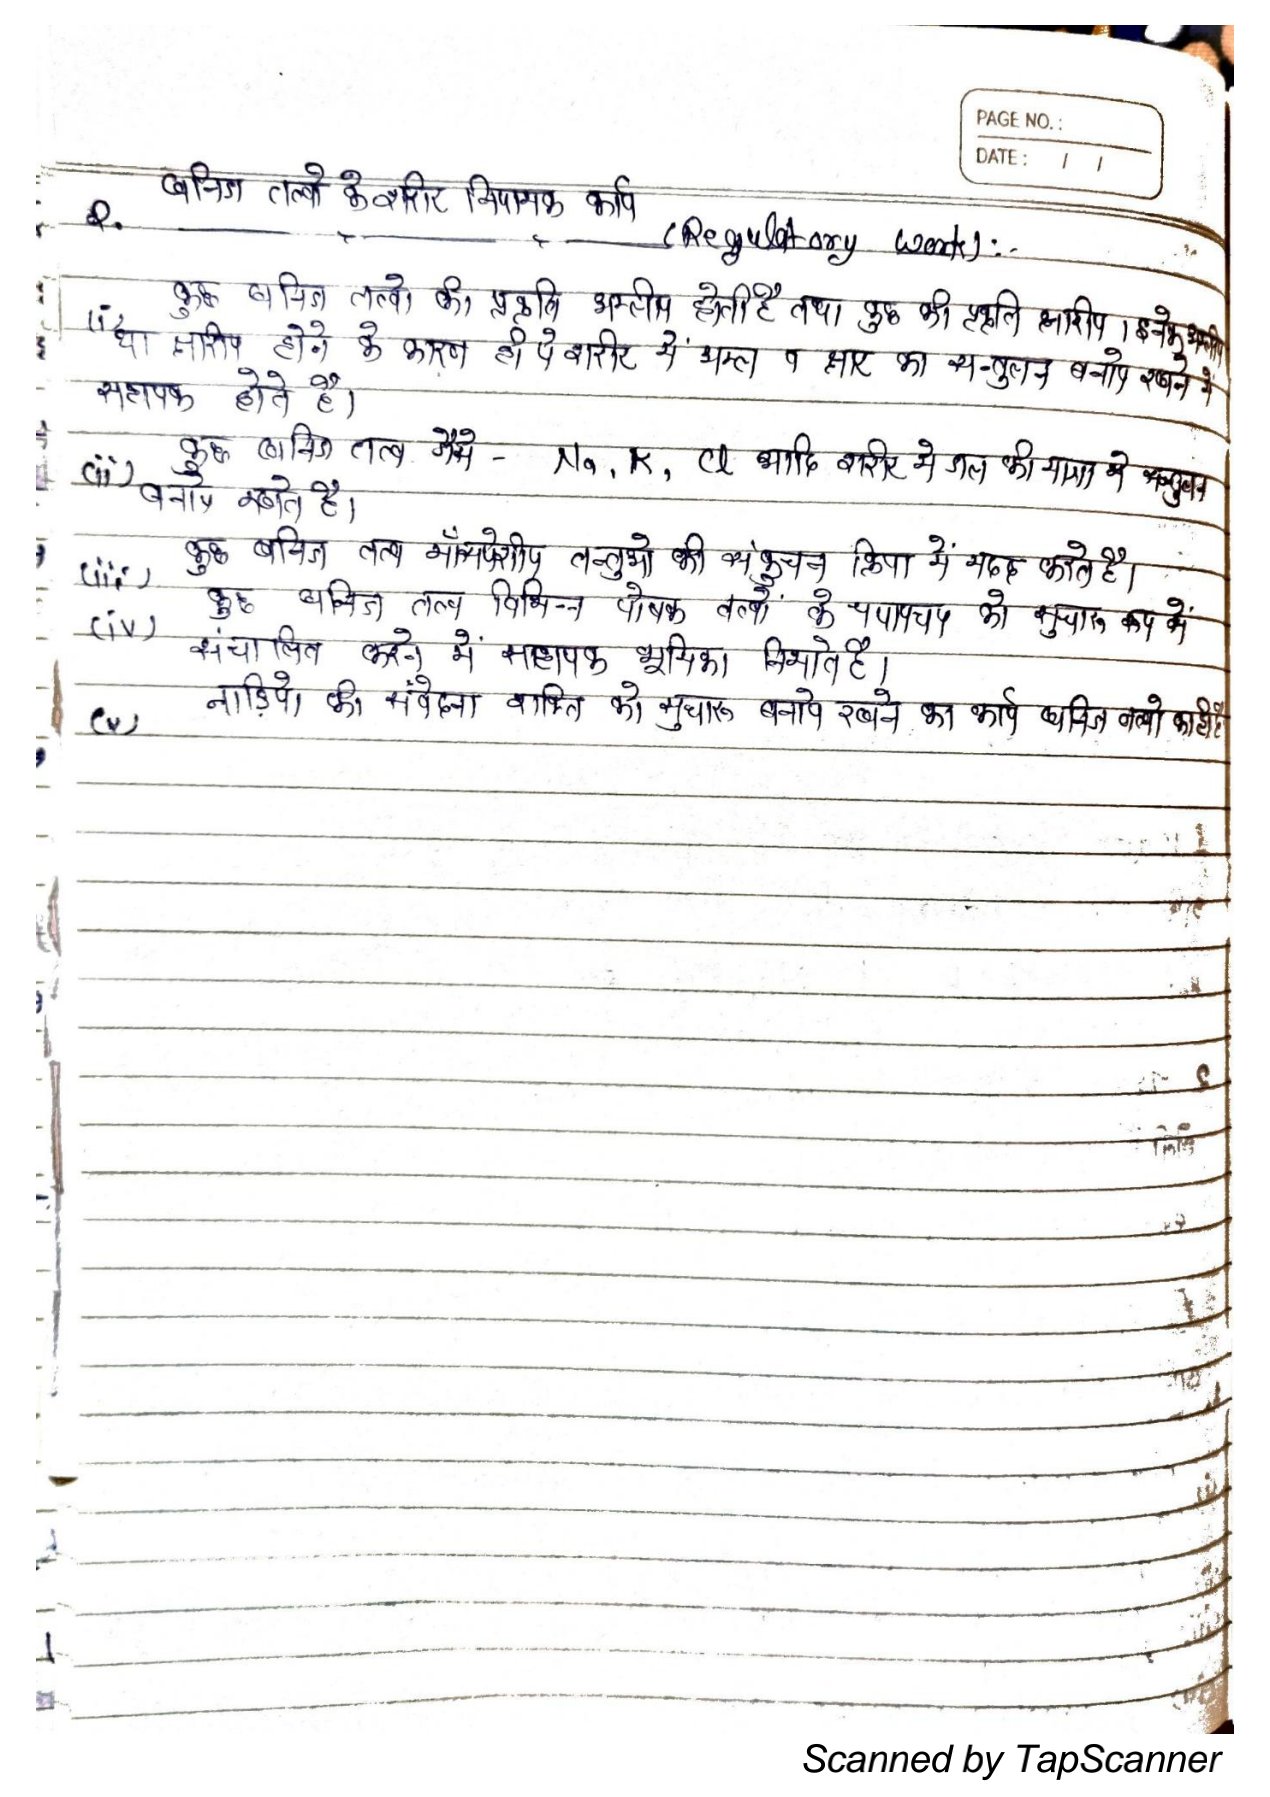 PAGE NO.:
DATE: / /
2. खनिज तत्वो के शरीर नियामक कार्य (Regulatory work):-
(i) कुछ खनिज तत्वो की प्रकृति अम्लीय होती है तथा कुछ की प्रकृति क्षारीय । इनके अम्लीय
या क्षारीय होने के कारण ही ये शरीर में अम्ल व क्षार का सन्तुलन बनाये रखने मे
सहायक होते है।
(ii) कुछ खनिज तत्व जैसे - Na, K, Cl आदि शरीर मे जल की मात्रा मे सन्तुलन
बनाये रखते है।
(iii) कुछ खनिज तत्व माँसपेशीय तन्तुओ की संकुचन क्रिया में मदद करते है।
(iv) कुछ खनिज तत्व विभिन्न पोषक तत्वों के चयापचय को सुचारू रूप में
संचालित करने में सहायक भूमिका निभाते है।
(v) नाड़ियो की संवेदना शक्ति को सुचारू बनाये रखने का कार्य खनिज तत्वो का ही है
Scanned by TapScanner